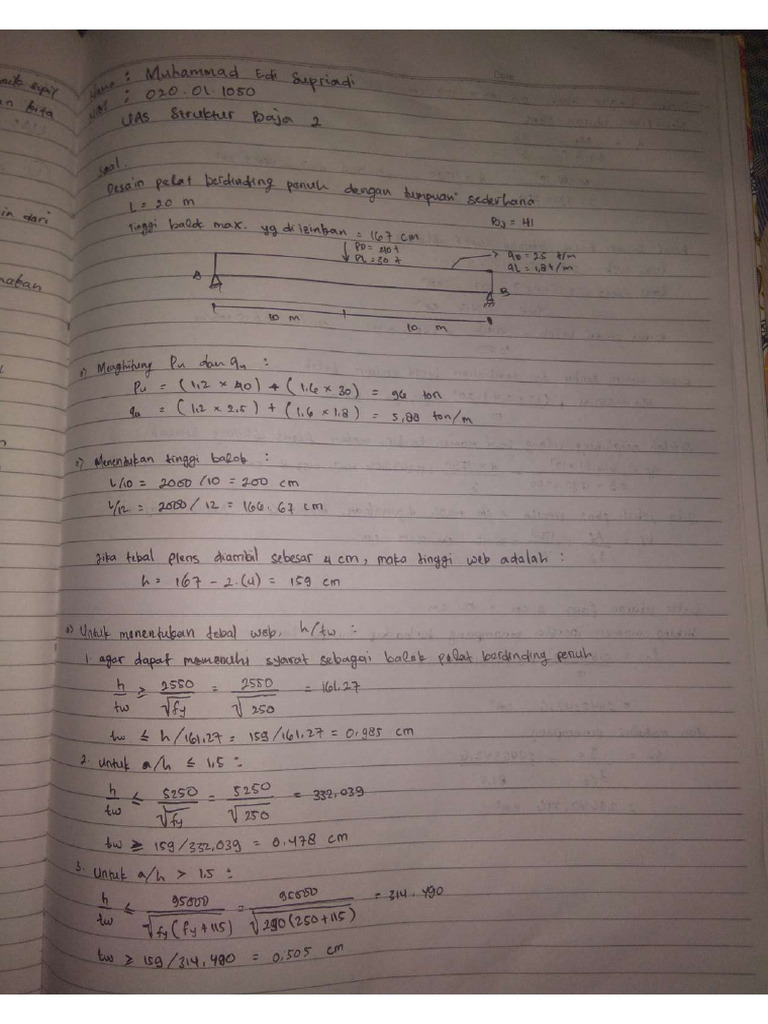 Nama : Muhammad Edi Supriadi
NIM : 020.01.1050
UAS Struktur Baja 2
Date
Soal.
Desain pelat berdinding penuh dengan tumpuan sederhana
L = 20 m
BJ = 41
tinggi balok max. yg diizinkan = 167 cm
PD = 40 t
PL = 30 t
qD = 2.5 t/m
qL = 1,8 t/m
B
10 m
10 m
Menghitung Pu dan qu :
Pu = (1,2 × 40) + (1.6 × 30) = 96 ton
qu = (1.2 × 2.5) + (1.6 × 1.8) = 5,88 ton/m
Menentukan tinggi balok :
L/10 = 2000/10 = 200 cm
L/12 = 2000/12 = 166.67 cm
Jika tebal plens diambil sebesar 4 cm, maka tinggi web adalah :
h = 167 - 2.(4) = 159 cm
Untuk menentukan tebal web, h/tw :
1. agar dapat memenuhi syarat sebagai balok pelat berdinding penuh
h/tw ≥ 2550/√fy = 2550/√250 = 161,27
tw ≤ h/161,27 = 159/161,27 = 0,985 cm
2. untuk a/h ≤ 1,5 :
h/tw ≤ 5250/√fy = 5250/√250 = 332,039
tw ≥ 159/332,039 = 0.478 cm
3. Untuk a/h > 1.5 :
h/tw ≤ 95000/√fy(fy+115) = 95000/√250(250+115) = 314.490
tw ≥ 159/314,490 = 0,505 cm